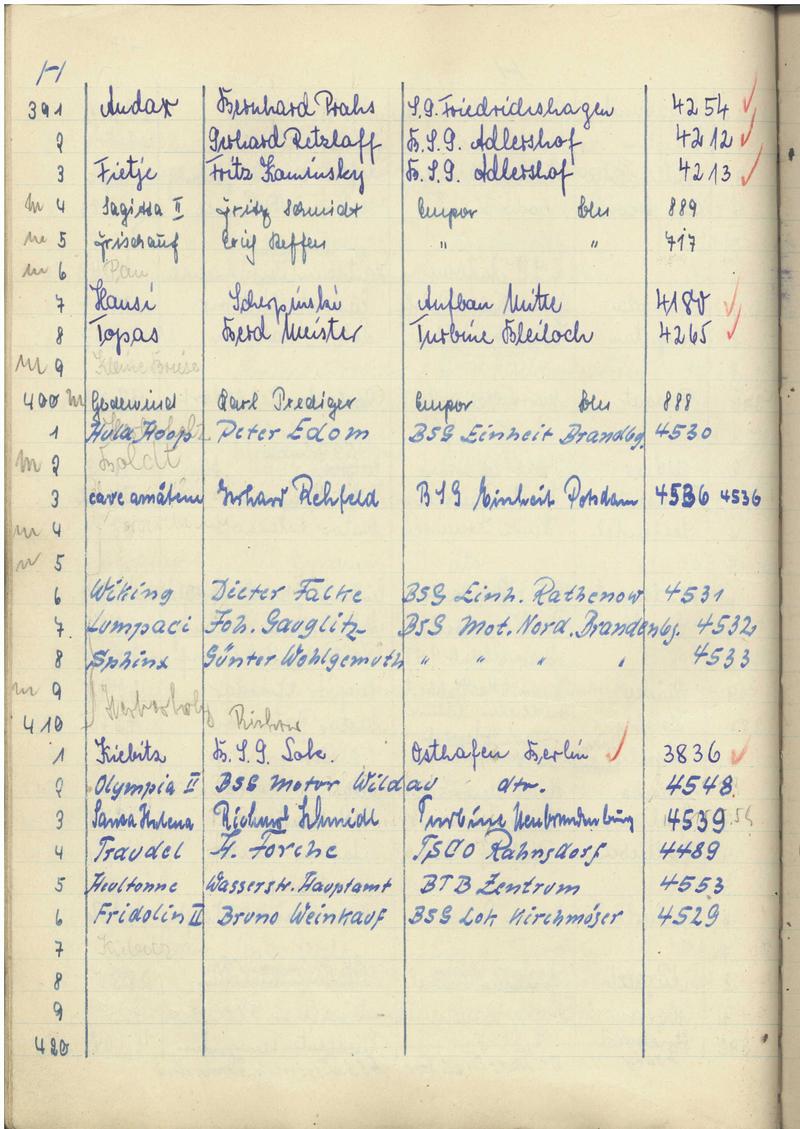 H
391 Audax Bernhard Prahs S.G. Friedrichshagen 4254
2 Gerhard Retzlaff B.S.G. Adlershof 4212
3 Fietje Fritz Kaminsky B.S.G. Adlershof 4213
m 4 Sagitta II Fritz Schmidt Empor Bln 889
m 5 Frischauf Erich Steffen " " 717
m 6
7 Hansi Scherpinski Aufbau Mitte 4180
8 Topas Berd Meister Turbine Bleiloch 4265
m 9 Kleine Brise
400 m Godewind Carl Prediger Empor Bln 888
1 Hula Hoop Peter Edom BSG Einheit Brandbg. 4530
m 2 Boldt
3 cave amåtem Gerhard Rehfeld BSG Einheit Potsdam 4536 4536
m 4
m 5
6 Wiking Dieter Falke BSG Einh. Rathenow 4531
7 Lumpaci Joh. Gauglitz BSG Mot. Nord. Brandenbg. 4532
8 Sphinx Günter Wohlgemuth " " " " 4533
m 9
410
1 Kiebitz B.S.G. Osthafen Berlin 3836
2 Olympia II BSG Motor Wildau dto. 4548
3 Santa Helena Richard Schmidt Turbine Neubrandenburg 4539
4 Traudel H. Forche TSCO Rahnsdorf 4489
5 Heultonne Wasserstr. Hauptamt BTB Zentrum 4553
6 Fridolin II Bruno Weinkauf BSG Lok Kirchmöser 4529
7 Kiebitz
8
9
420